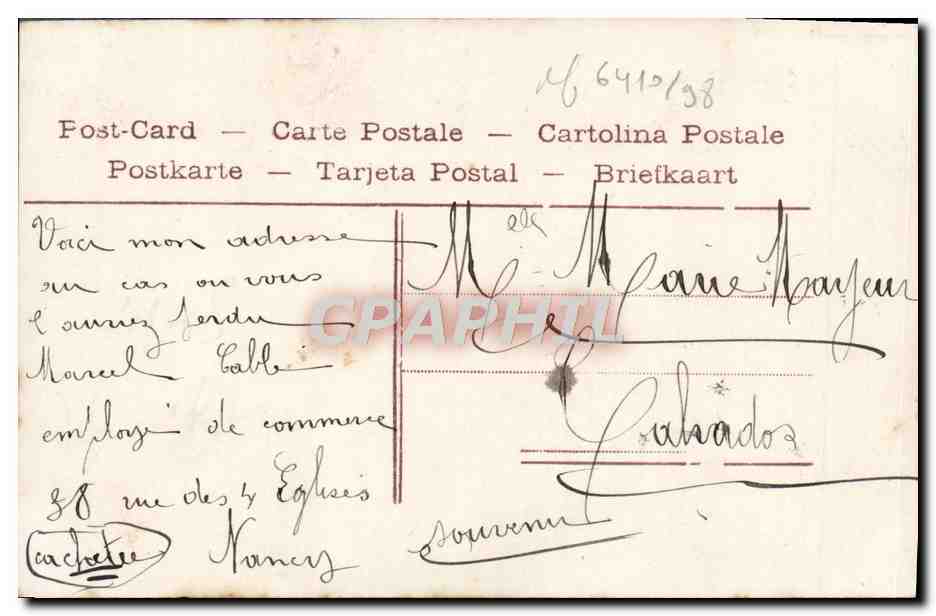 6410/98
Post-Card — Carte Postale — Cartolina Postale
Postkarte — Tarjeta Postal — Briefkaart
Voici mon adresse
au cas ou vous
l'auriez perdu
Marcel Cablé
employé de commerce
38 rue des 4 Eglises
Nancy
cachetée
souvenir
Melle Marie Mayeur
Calvados
CPAPHIL